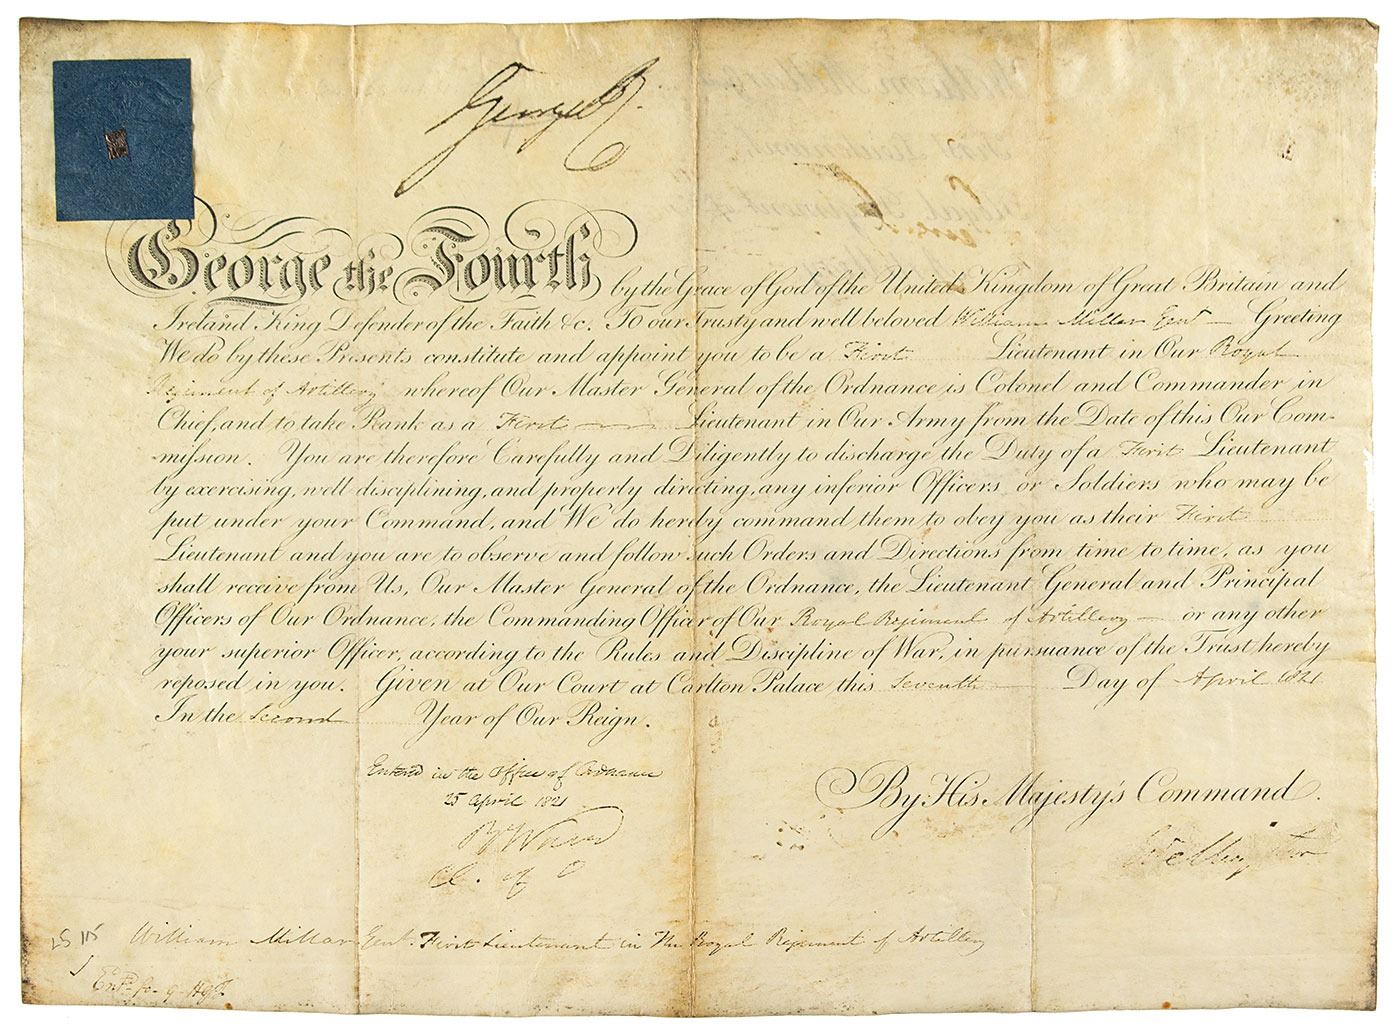 George R
George the Fourth by the Grace of God of the United Kingdom of Great Britain and
Ireland King Defender of the Faith &c. To our Trusty and well beloved William Millar Gent Greeting
We do by these Presents constitute and appoint you to be a First Lieutenant in Our Royal
Regiment of Artillery whereof Our Master General of the Ordnance is Colonel and Commander in
Chief, and to take Rank as a First Lieutenant in Our Army from the Date of this Our Com-
mission. You are therefore Carefully and Diligently to discharge the Duty of a First Lieutenant
by exercising, well disciplining, and properly directing, any inferior Officers or Soldiers who may be
put under your Command, and We do hereby command them to obey you as their First
Lieutenant and you are to observe and follow such Orders and Directions from time to time, as you
shall receive from Us, Our Master General of the Ordnance, the Lieutenant General and Principal
Officers of Our Ordnance, the Commanding Officer of Our Royal Regiment of Artillery or any other
your superior Officer, according to the Rules and Discipline of War, in pursuance of the Trust hereby
reposed in you. Given at Our Court at Carlton Palace this Seventh Day of April 1821
In the Second Year of Our Reign.
Enterd in the Office of Ordnance
25 April 1821
Ward
Cl. of O
By His Majesty's Command.
Wellington
William Millar Gent. First Lieutenant in The Royal Regiment of Artillery